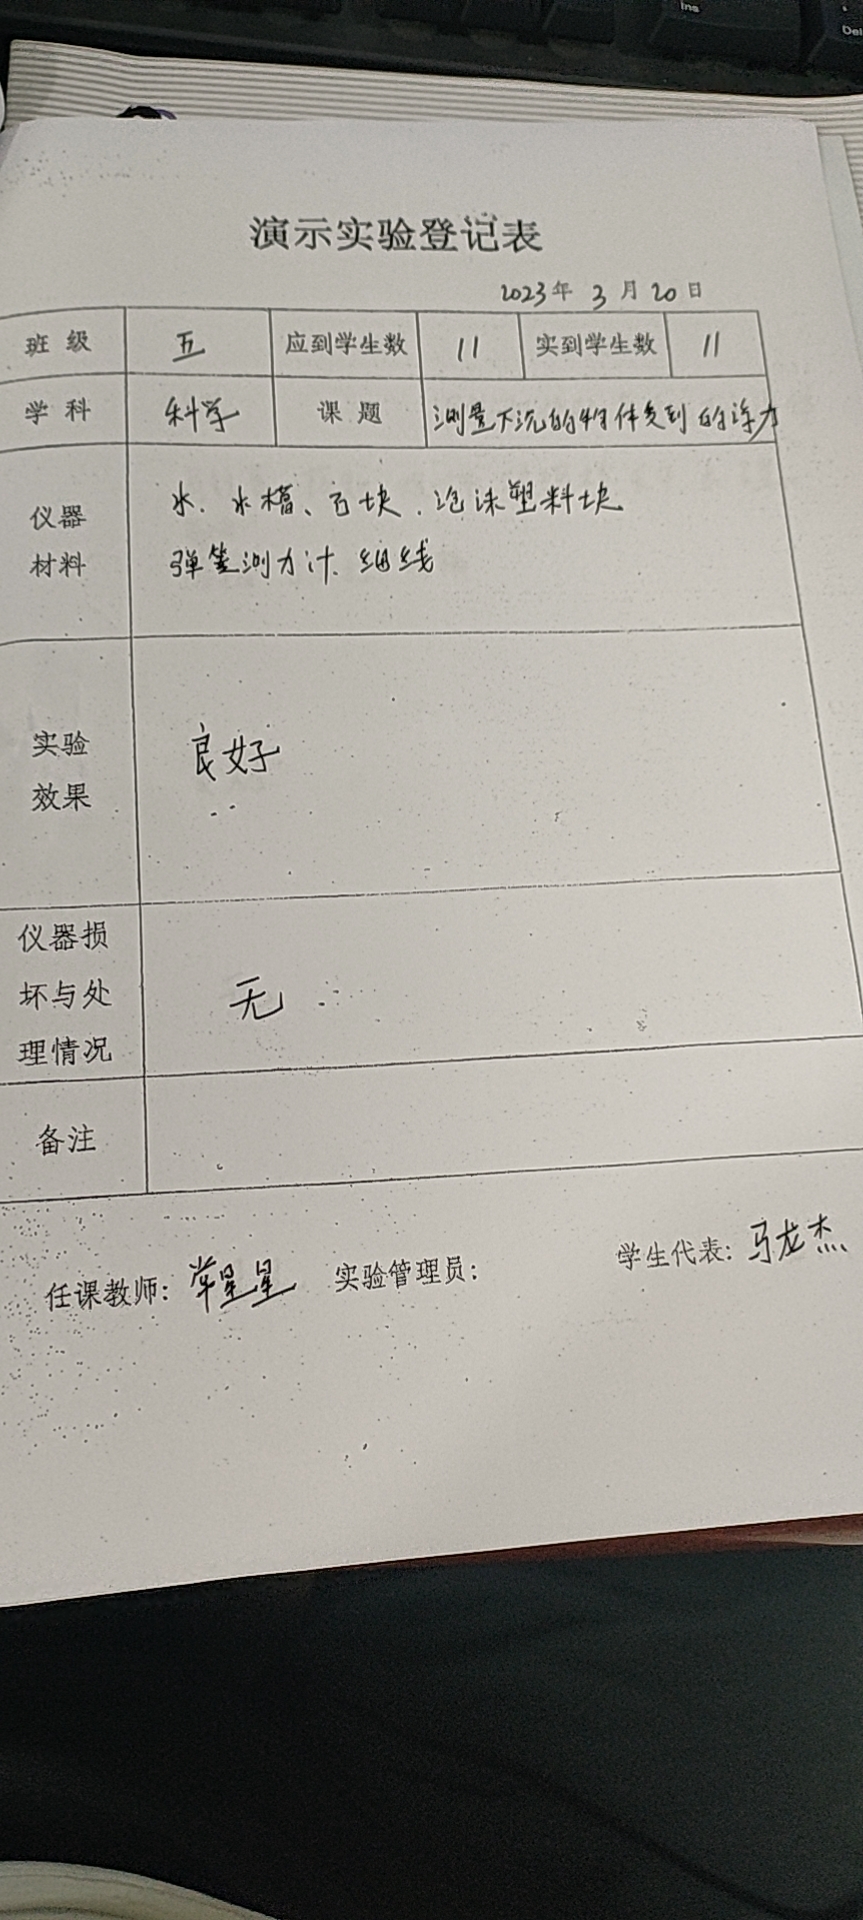 Ins
Del
演示实验登记表
2023年 3 月 20 日
班 级 五 应到学生数 11 实到学生数 11
学 科 科学 课 题 测量下沉的物体受到的浮力
仪器
材料
水、水槽、石块、泡沫塑料块
弹簧测力计、细线
实验
效果
良好
仪器损
坏与处
理情况
无
备注
任课教师: 星星 实验管理员: 学生代表: 马龙杰